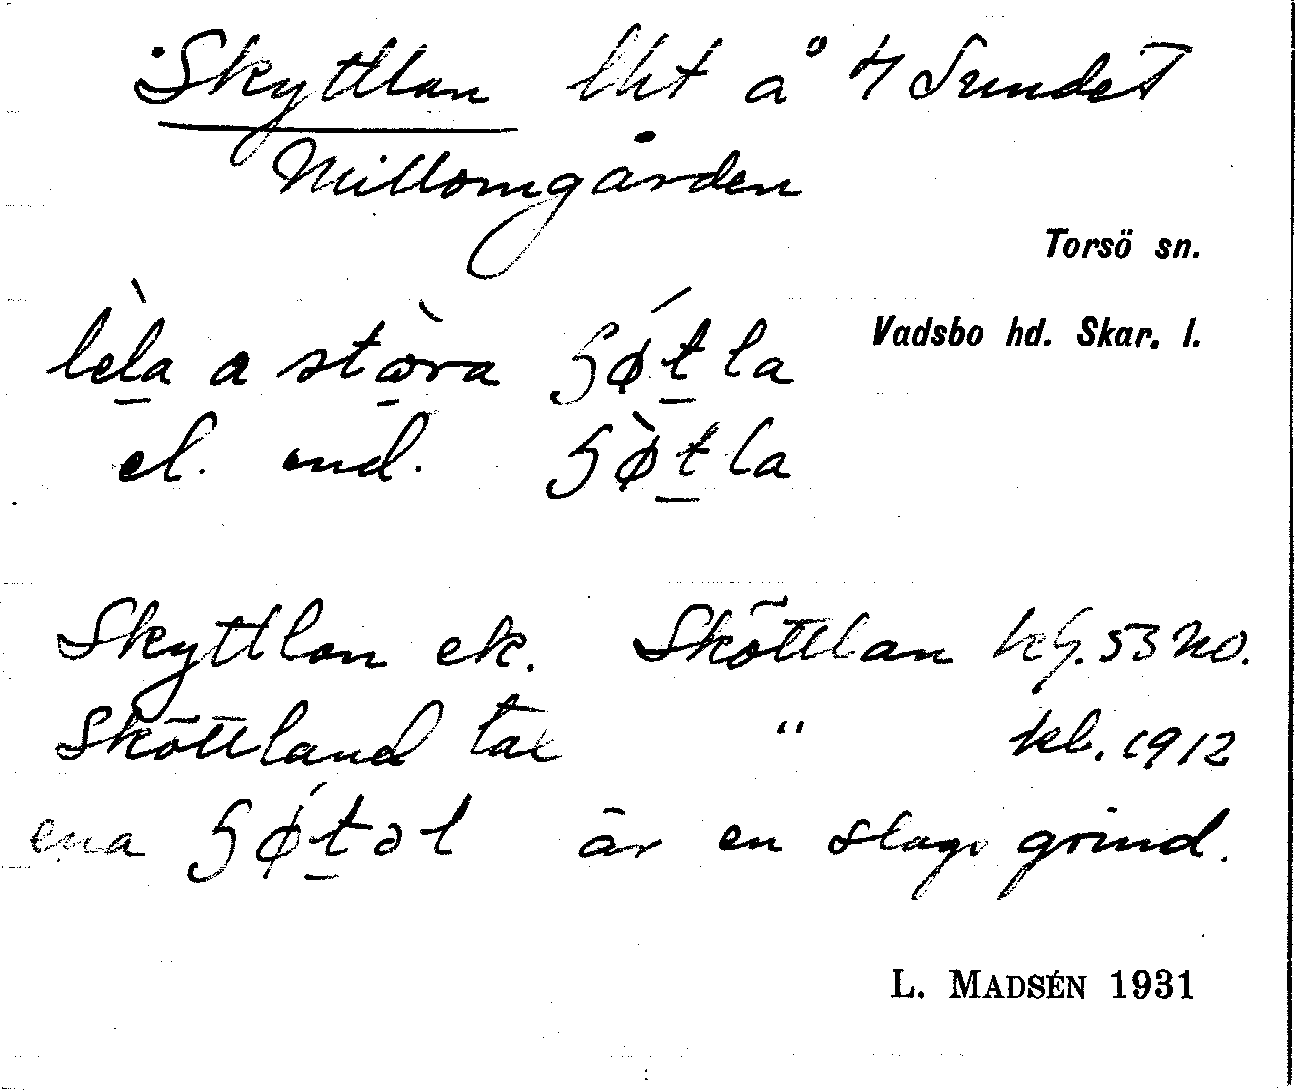 Skyttlan lht å 4/7 Sundet
Millomgården
Torsö sn.
Vadsbo hd. Skar. l.
lè̱la a stæ̱̀ra ʃǿṯla
el. und. ʃø̀ṯla
Skyttlan ek. Sköttlan kg. 53 NO.
Sköttland tax " kb. 1912
ena ʃǿṯəl är en slags grind.
L. MADSÉN 1931